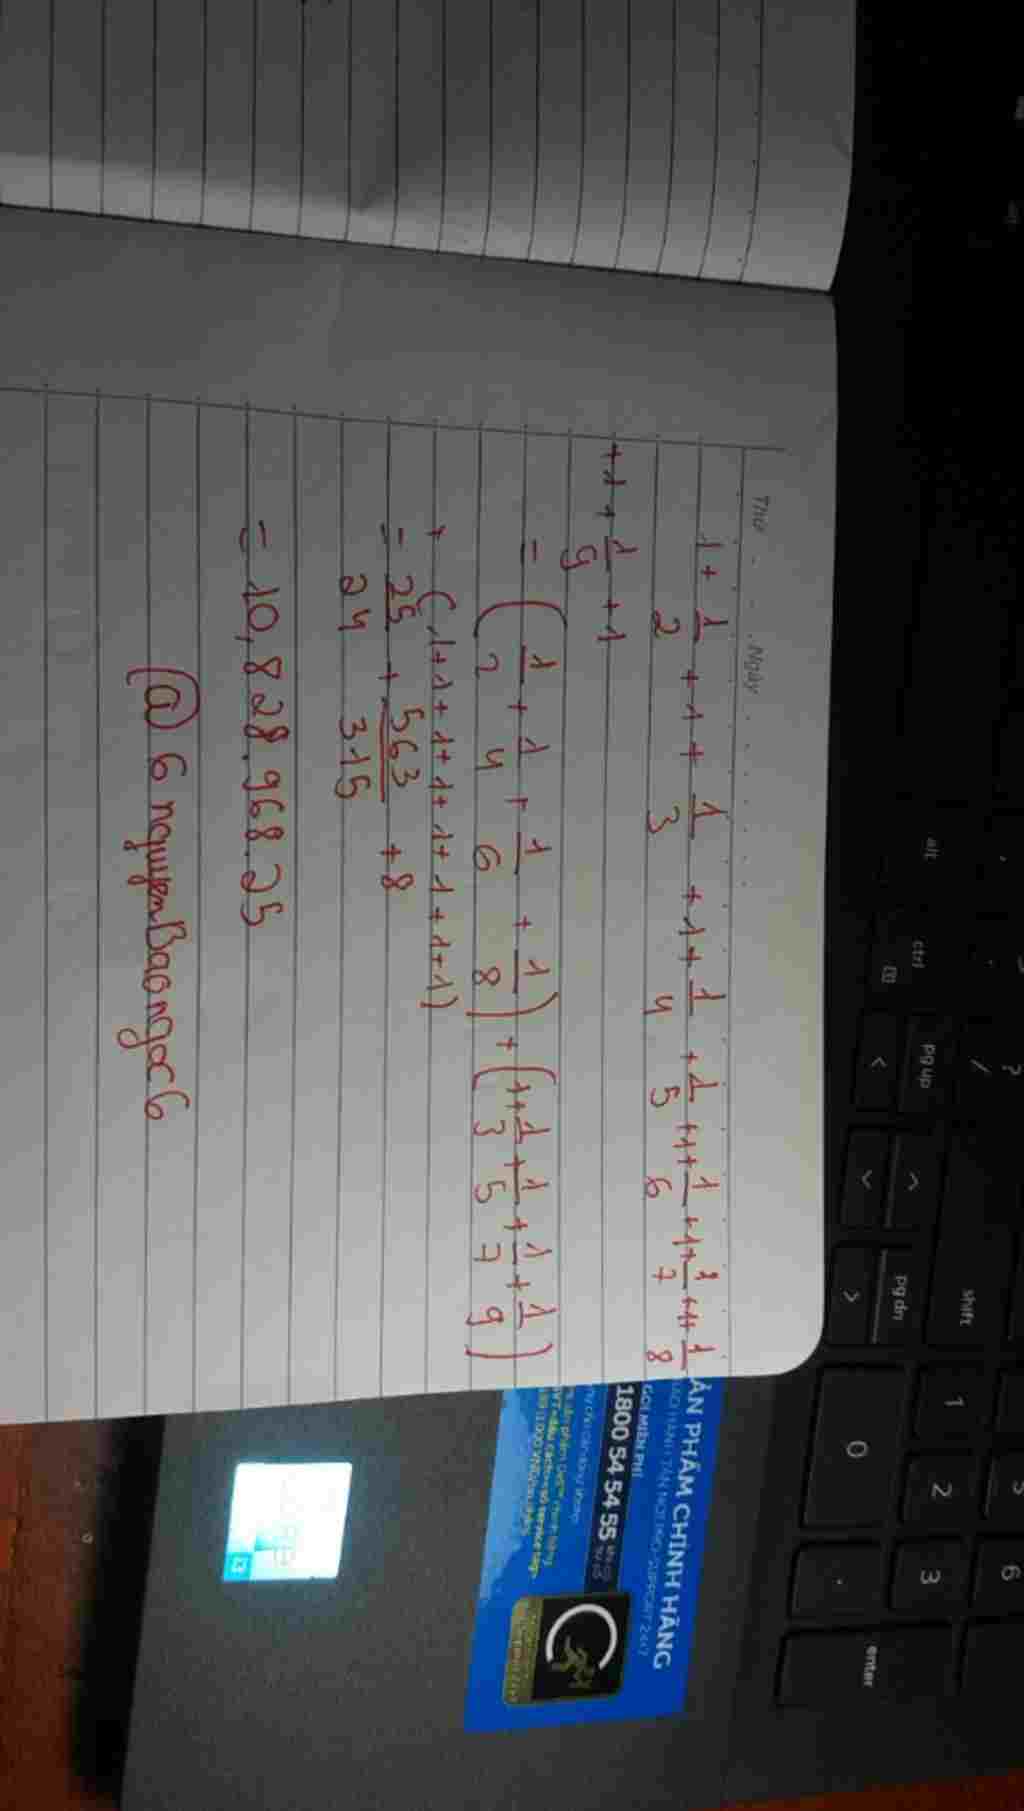 Thứ . . . . Ngày . . . . . . . . .
1 + 1/2 + 1 + 1/3 + 1 + 1/4 + 1/5 + 1 + 1/6 + 1 + 1/7 + 1 + 1/8
+ 1 + 1/9 + 1
= (1/2 + 1/4 + 1/6 + 1/8) + (1 + 1/3 + 1/5 + 1/7 + 1/9)
+ (1+1+1+1+1+1+1+1)
= 25/24 + 563/315 + 8
= 10,828.968.25
@ 6 nguyenBaongoc6
ẢN PHẨM CHÍNH HÃNG
GỌI MIỄN PHÍ
1800 54 54 55
alt
ctrl
pg up
pg dn
shift
enter
?
/
<
>
0
1
2
3
5
6
.
i3